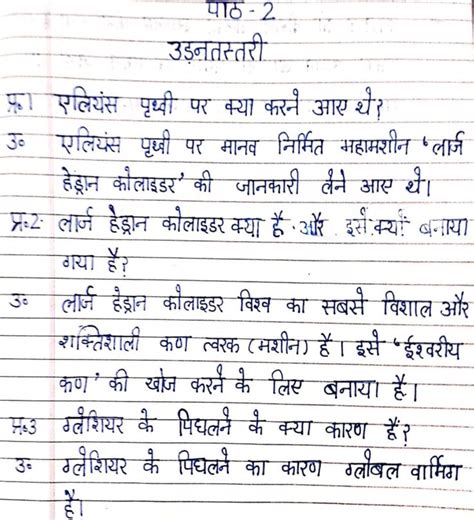 पाठ - 2
उड़नतस्तरी
प्र.1 एलियंस पृथ्वी पर क्या करने आए थे?
उ॰ एलियंस पृथ्वी पर मानव निर्मित महामशीन 'लार्ज
हेड्रान कोलाइडर' की जानकारी लेने आए थे।
प्र॰2 लार्ज हेड्रान कोलाइडर क्या है और इसे क्यों बनाया
गया है?
उ॰ लार्ज हेड्रान कोलाइडर विश्व का सबसे विशाल और
शक्तिशाली कण त्वरक (मशीन) है। इसे 'ईश्वरीय
कण' की खोज करने के लिए बनाया है।
प्र॰3 ग्लेशियर के पिघलने के क्या कारण हैं?
उ॰ ग्लेशियर के पिघलने का कारण ग्लोबल वार्मिंग
है।